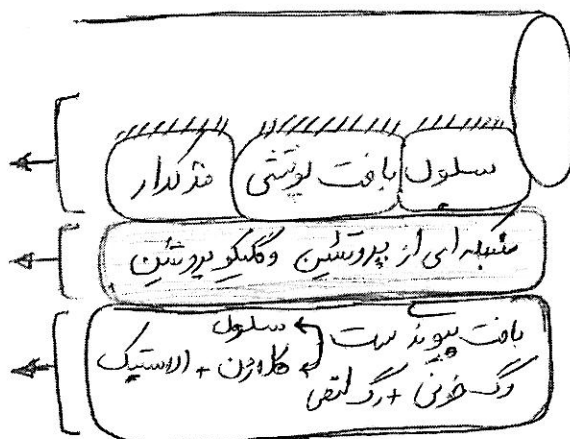 سلول بافت پوششی مژکدار
شبکه ای از پروتئین و گلیکوپروتئین
بافت پیوند ست
سلول
کلاژن + الاستیک
رگ خونی + رگ لنفی